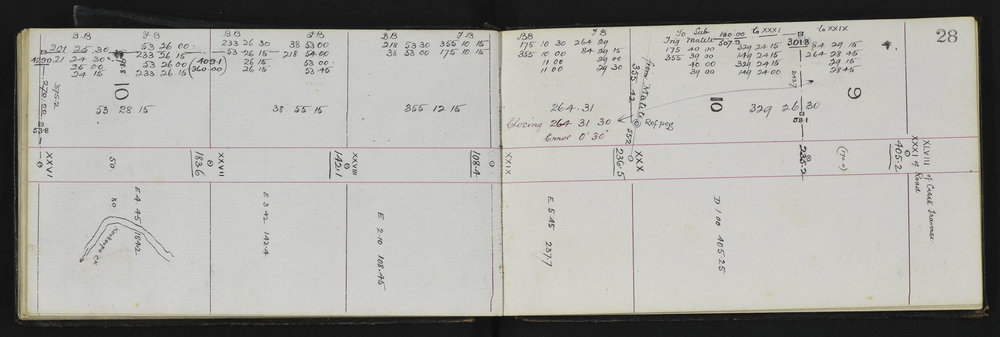 B.B F.B
201 25 30 53 26 00
4290.21 24 30 233 26 15
26 00 53 26 00
24 15 233 26 15
10
270.22
3752
53.8
53 28 15
B.B F.B
233 26 30 38 53 00
53 26 15 218 54 00
(409.1 26 15 53 00
360 00) 26 15 53 45
38 55 15
B.B F.B
218 53 30 355 10 15
38 53 00 175 10 15
355 12 15
BB F.B
175 10 30 264 29
355 10 00 84 29 15
11 00 29 00
11 00 29 30
264.31
Closing 264 31 30
Error 0' 30"
from Matile
355 42
552
Ref peg
To Sub 180 00 to XXXI
Trig Matile 507.3
175 40 00 329 24 15
355 39 00 149 24 15
40 00 329 24 15
39 00 149 24 00
10
329 26 30
301.8
2437
53.1
to XXIX
84 29 15
264 28 45
29 15
28 45
9
28
XXVI
50
183.6
XXVII
142.1
XXVIII
108.4
XXIX
236.5
XXX
225.2
405.2
XXXI of Road
XLVIII of Creek Traverse
E 4 45 184.2
80
E 3 42 142.4
E 2 10 108.45
E 5 45 237.7
D 1 00 405.25